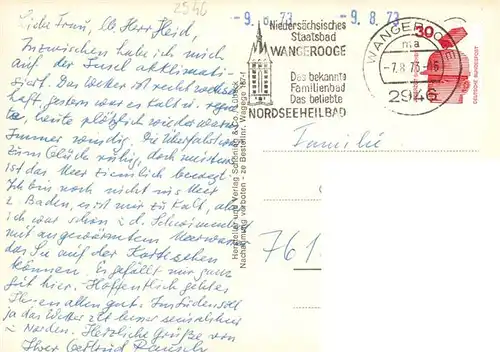 2546
-9. 8. 73
-9. 8. 73
Liebe Frau, lb. Herr Heid,
Inzwischen habe ich mich
auf der Insel akklimati-
siert. Das Wetter ist recht wechsel-
haft, gestern war es kalt u. regne-
te, heute plötzlich wieder warm,
Immer windig. Die Überfahrt war
zum Glück ruhig, doch meistens
ist das Meer ziemlich bewegt.
Ich bin noch nicht ins Meer
z. Baden, es ist mir zu kalt, aber
ich war schon i. d. Schwimmbad
mit angewärmtem Meerwasser
das Sie auf der Karte sehen
können. Es gefällt mir ganz
gut hier. Hoffentlich geht es
Ihnen allen gut. Im Süden soll
ja das Wetter z. Zt. besser sein als hier
i. Norden. Herzliche Grüße, von
Ihrer Gertrud
Niedersächsisches
Staatsbad
WANGEROOGE
Das bekannte
Familienbad
Das beliebte
NORDSEEHEILBAD
WANGEROOGE
ma
-7.8.73-16
2946
30
DEUTSCHE BUNDESPOST
Hersteller und Verlag Schöning & Co., Lübeck
Nachahmung verboten - ze Bestellnr. Wange 1674
Familie
761